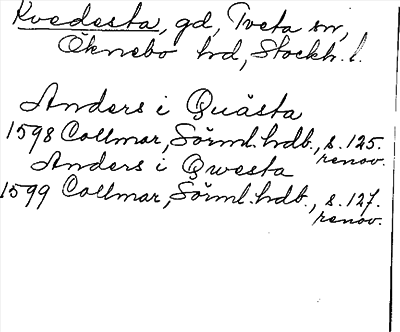 Kvedesta, gd, Tveta sn,
Öknebo hd, Stockh. l.
Anders i Quästa
1598 Collmar, Sörml. hdb., s. 125.
renov.
Anders i Qwesta
1599 Collmar, Sörml. hdb., s. 127.
renov.